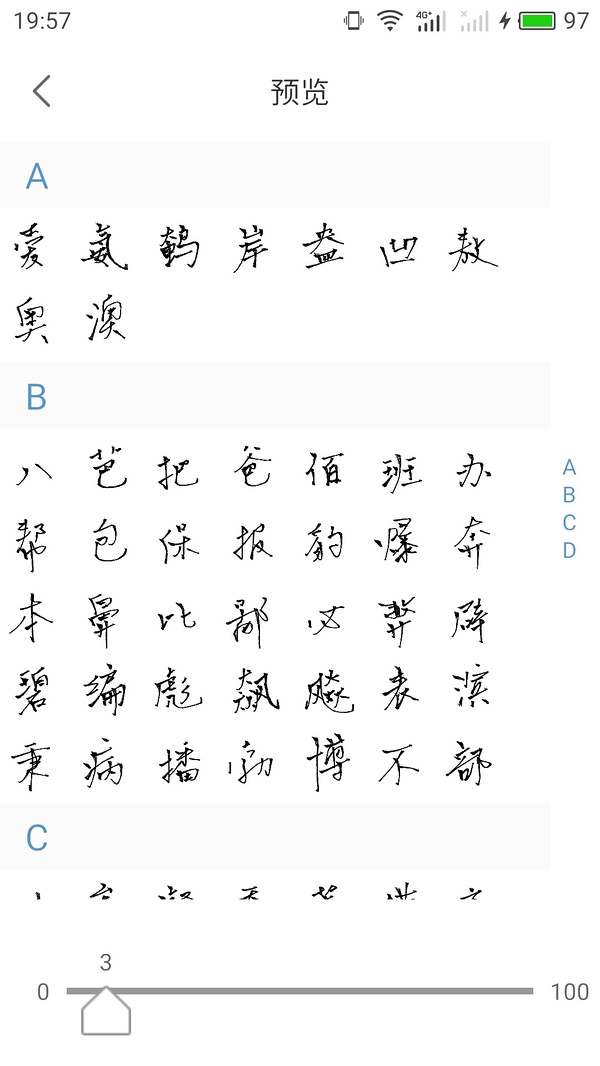 19:57 4G+ 97
预览
A
爱 氨 鹌 岸 盎 凹 敖
奥 澳
B
八 芭 把 爸 佰 班 办
帮 包 保 报 豹 爆 奔
本 鼻 比 鄙 必 弊 辟
碧 编 彪 飙 飚 表 滨
秉 病 播 勃 博 不 部
C
A
B
C
D
3
0 100